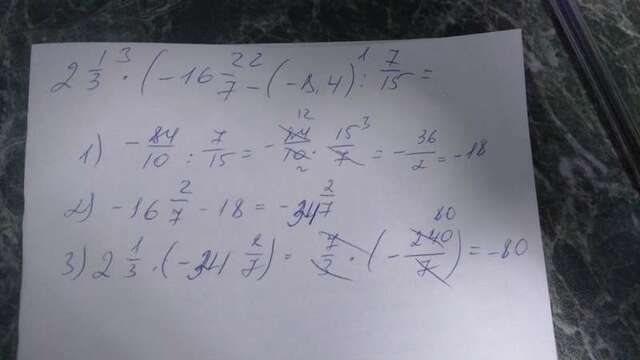 2 1/3 · (-16 2/7 - (-8,4) : 7/15 =
1) - 84/10 : 7/15 = - 84/10 · 15/7 = - 36/2 = -18
2) -16 2/7 - 18 = -34 2/7
3) 2 1/3 · (-34 2/7) = 7/3 · (- 240/7) = -80